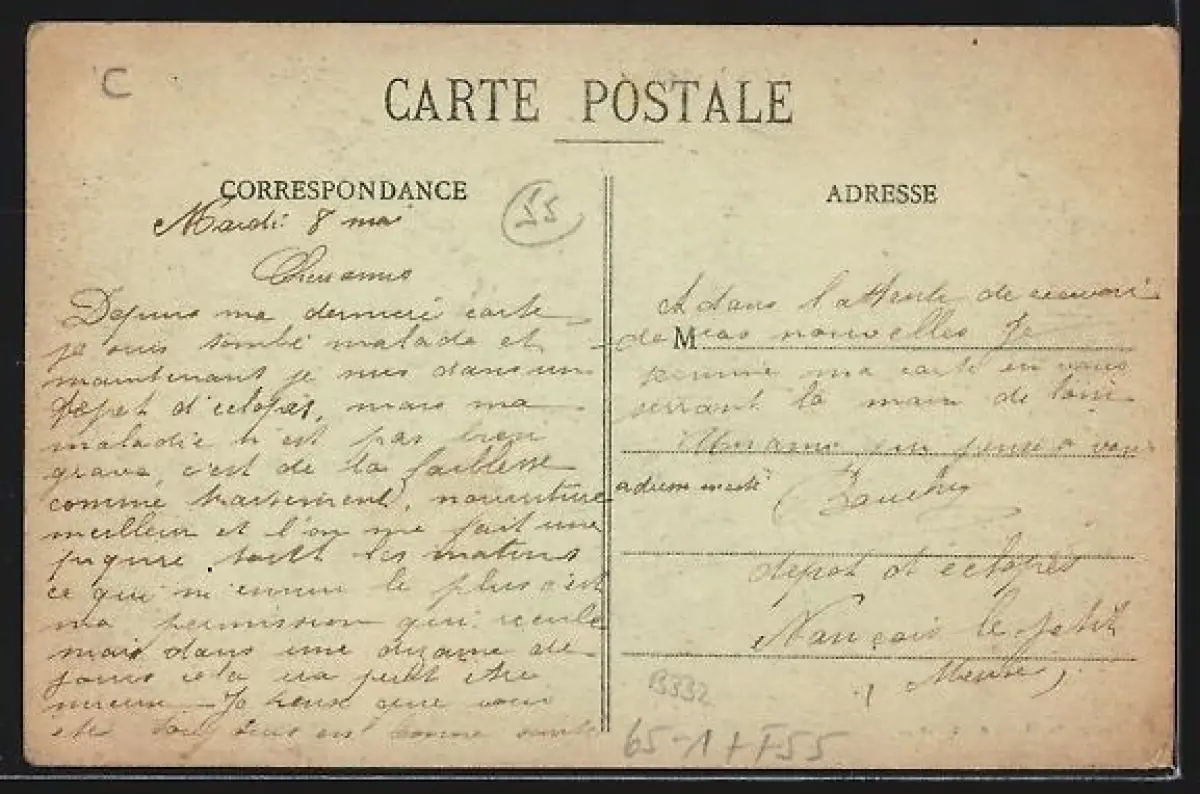 C
CARTE POSTALE
CORRESPONDANCE
Mardi 8 mai
55
Chers amis
Depuis ma derniere carte
je suis tombé malade et
maintenant je suis dans un
depot d'eclopés, mais ma
maladie n'est pas bien
grave, c'est de la faiblesse
comme traitement, nourriture
meilleur et l'on me fait une
piqure tout les matins
ce qui m'ennui le plus c'est
ma permission qui recule
mais dans une dizaine de
jours cela ira peut etre
mieux - Je pense que vous
etes toujours en bonne santé
ADRESSE
Et dans l'attente de recevoir
de vos nouvelles Je
M
termine ma carte en vous
serrant la main de loin
Un ami qui pense a vous
adresse exacte
depot d'eclopés
Nançois le petit
(Meuse)
B332
65-1++F55